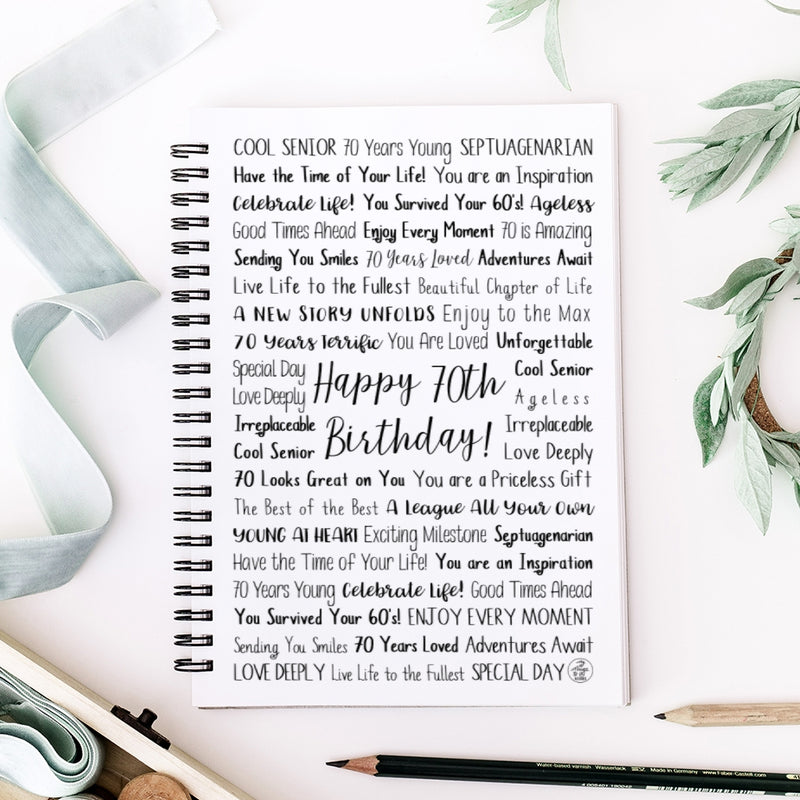 COOL SENIOR 70 Years Young SEPTUAGENARIAN
Have the Time of Your Life! You are an Inspiration
Celebrate Life! You Survived Your 60's! Ageless
Good Times Ahead Enjoy Every Moment 70 is Amazing
Sending You Smiles 70 Years Loved Adventures Await
Live Life to the Fullest Beautiful Chapter of Life
A NEW STORY UNFOLDS Enjoy to the Max
70 Years Terrific You Are Loved Unforgettable
Special Day Cool Senior
Love Deeply Happy 70th Ageless
Irreplaceable Birthday! Irreplaceable
Cool Senior Love Deeply
70 Looks Great on You You are a Priceless Gift
The Best of the Best A League All Your Own
YOUNG AT HEART Exciting Milestone Septuagenarian
Have the Time of Your Life! You are an Inspiration
70 Years Young Celebrate Life! Good Times Ahead
You Survived Your 60's! ENJOY EVERY MOMENT
Sending You Smiles 70 Years Loved Adventures Await
LOVE DEEPLY Live Life to the Fullest SPECIAL DAY
Water-based varnish Wasserlack Made in Germany www.Faber-Castell.com